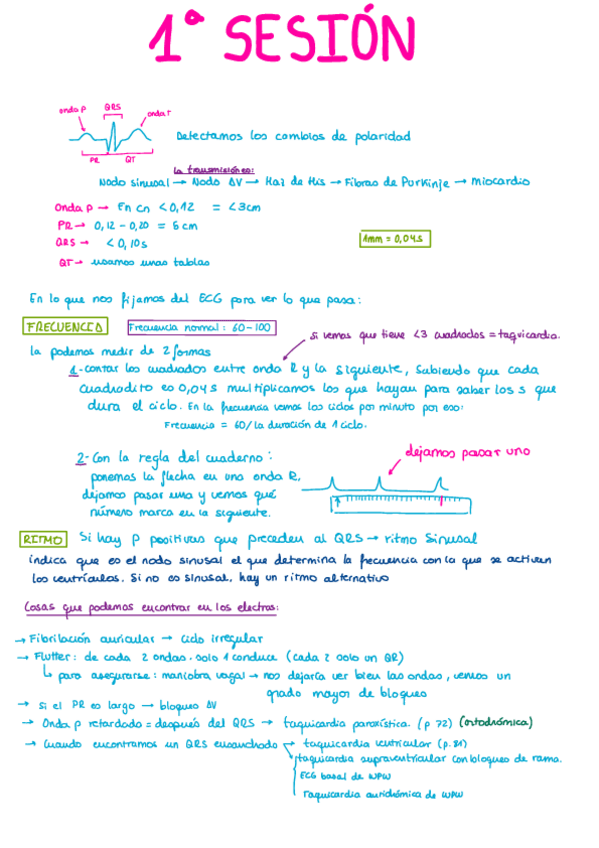 1ª SESIÓN
onda P
QRS
onda T
PR
QT
Detectamos los cambios de polaridad
La transmisión es:
Nodo sinusal → Nodo AV → Haz de His → Fibras de Purkinje → Miocardio
Onda P → En cn < 0,12 = <3cm
PR → 0,12 - 0,20 = 5 cm
QRS → < 0,10s
1mm = 0,04s
QT → usamos unas tablas
En lo que nos fijamos del ECG para ver lo que pasa:
FRECUENCIA
Frecuencia normal: 60-100
si vemos que tiene <3 cuadrados = taquicardia.
la podemos medir de 2 formas
1- contar los cuadrados entre onda R y la siguiente, Sabiendo que cada
cuadradito es 0,04 s multiplicamos los que hayan para saber los s que
dura el ciclo. En la frecuencia vemos los ciclos por minuto por eso:
Frecuencia = 60/la duración de 1 ciclo.
2- Con la regla del cuaderno:
ponemos la flecha en una onda R,
dejamos pasar una y vemos qué
número marca en la siguiente.
dejamos pasar uno
RITMO Si hay P positivas que preceden al QRS → ritmo Sinusal
indica que es el nodo sinusal el que determina la frecuencia con la que se activan
los ventrículos. Si no es sinusal, hay un ritmo alternativo
Cosas que podemos encontrar en los electros:
→ Fibrilación auricular → ciclo irregular
→ Flutter: de cada 2 ondas. solo 1 conduce (cada 2 solo un QR)
↳ para asegurarse: maniobra vagal → nos dejaría ver bien las ondas, vemos un
grado mayor de bloqueo
→ si el PR es largo → bloqueo AV
→ Onda P retardada = después del QRS → taquicardia paroxística. (p 72) (ortodrómica)
→ Cuando encontramos un QRS ensanchado → taquicardia ventricular (p. 81)
taquicardia supraventricular con bloqueo de rama.
ECG basal de WPW
Taquicardia antidrómica de WPW